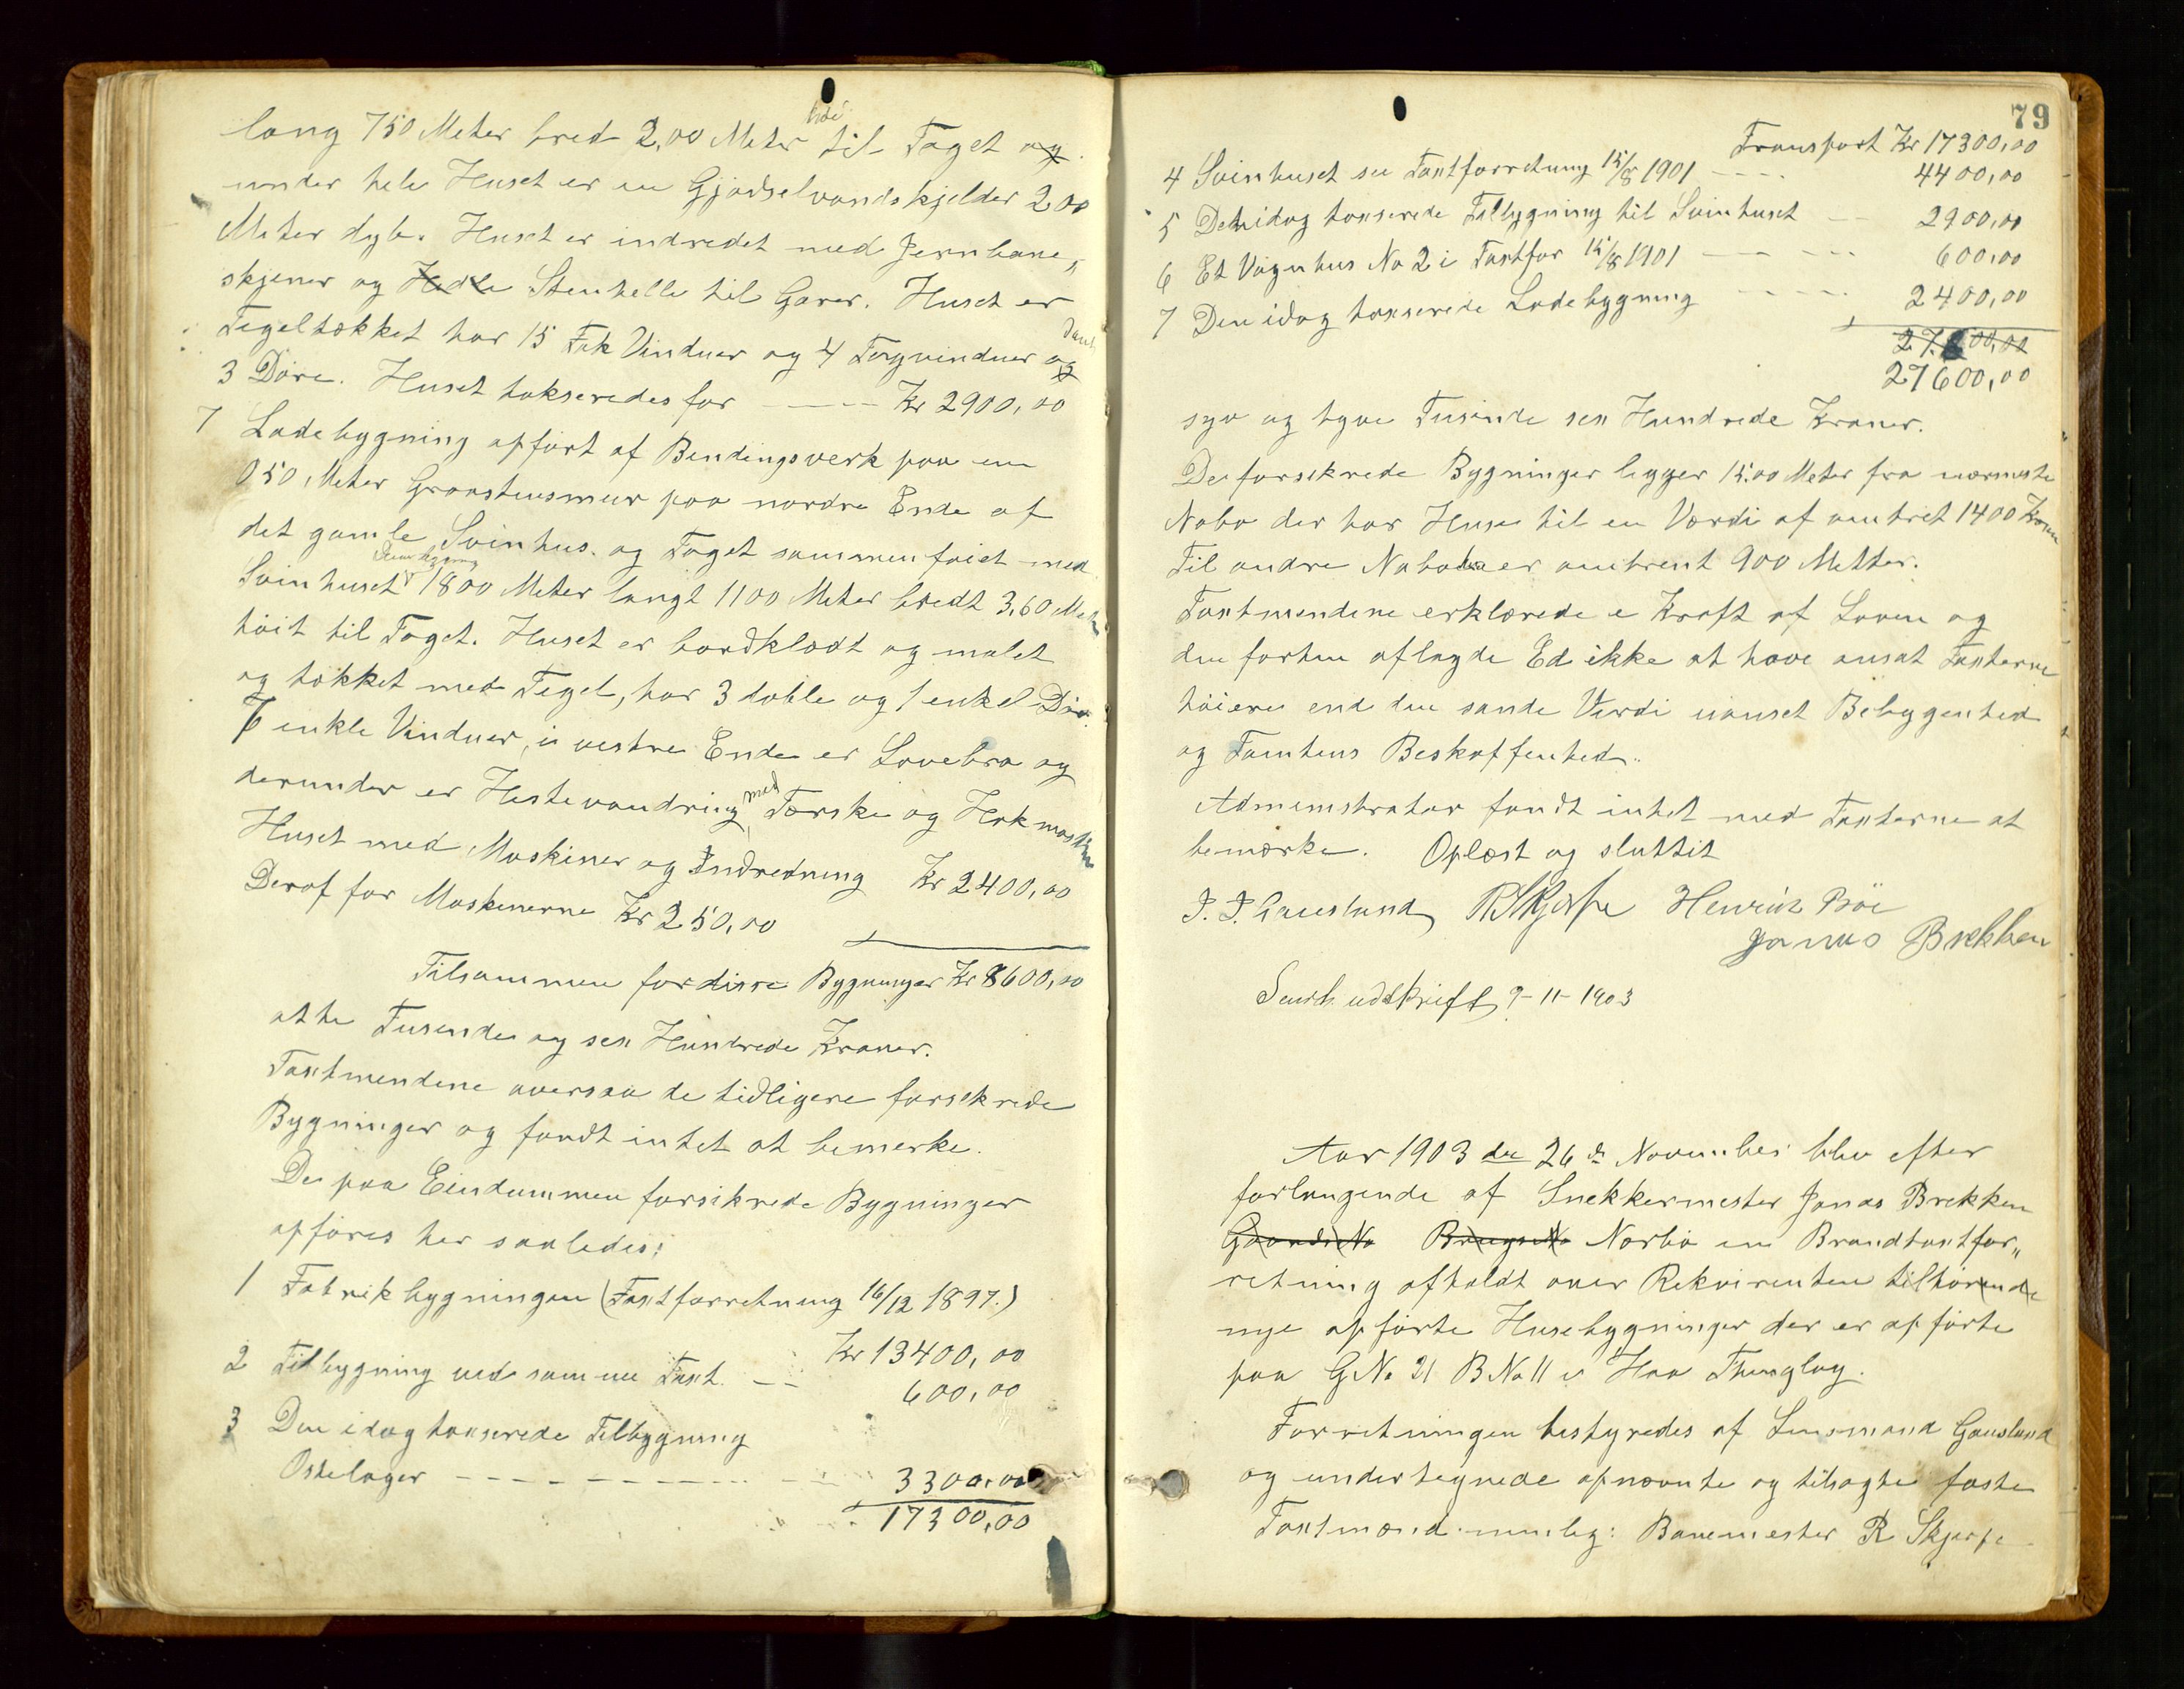 lang 7.50 Meter bred 2,00 Meter höi til Taget og
under hele Huset er en Gjødselvandskjelder 2.00
Meter dyb. Huset er indredet med Jernbane„
skjener og Helle Stenhelle til Garer. Huset er
Tegeltækket har 15 Fak Vinduer og 4 Tagvinduer og
3 Döre. Huset takseredes for ---- Kr 2900,00
7 Ladebygning opfört af Bendingsverk paa en
050 Meter Graastensmur paa nordre Ende af
det gamle Svinhus. og Taget sammenföiet med
Svinhuset 1800 Meter langt 1100 Meter bredt 3,60 Meter
höit til Taget. Huset er bordklædt og malet
og tækket med Tegel, har 3 doble og 1 enkel Dör.
7 enkle Vinduer, i vestre Ende er Lovebro og
derunder er Hestevandring med Tærske og Hakmaskin
Huset med Maskiner og Indredning Kr 2400,00
Deraf for Maskinerne Kr 250,00
Tilsammen for disse Bygninger Kr 8600,00
otte Tusende og sex Hundrede Kroner.
Taxtmendene oversaa de tidligere forsikrede
Bygninger og fandt intet at bemerke.
De paa Eindommen forsikrede Bygninger
opføres her saaledes:
1 Fabrikbygningen (Taxtforretning 16/12 1897.)
Kr 13400,00
2 Tilbygning ved samme Taxt. -- 600,00
3 Den idag taxserede Tilbygning
Ostelager ------- 3300,00
17300,00
79
Transport Kr 17300,00
4 Svinhuset se Taxtforretning 15/8 1901 ---- 4400,00
5 Den idag taxserede Tilbygning til Svinhuset -- 2900,00
6 Et Vognhus No 2 i Taxtfor 15/8 1901 ---- 600,00
7 Den idag taxserede Ladebygning ---- 2400,00
27600,00
syv og tyve Tusinde sex Hundrede Kroner.
De forsikrede Bygninger ligger 15.00 Meter fra nærmeste
Nabo der har Huse til en Værdi af omtret 1400 Kroner
Til andre Naboer er omtrent 900 Metter.
Taxtmendene erklærede i Kraft af Loven og
den forhen aflagde Ed ikke at have ansat Taxterne
höiere end den sande Værdi uanset Bebyggenhed
og Tomtens Beskaffenhed.
Administrator fandt intet med Taxterne at
bemærke. Oplæst og sluttet
J. J. Gausland R Skjerpe Henrik Böe
Jonas Brekken
Sendt udskrift 9-11-1903
Aar 1903 den 26de November blev efter
forlangende af Snekkermester Jonas Brekken
Gaards No Brugs No Nærbø en Brandtaxtfor„
retning afholdt over Rekvirenten tilhørende
nye opførte Husebygninger der er opførte
paa GNo 21 BNo 11 i Haa Thinglag.
Forretningen bestyredes af Lensmand Gausland
og undertegnede opnævnte og tilsagte faste
Taxtmænd nemlig: Banemester R Skjerpe